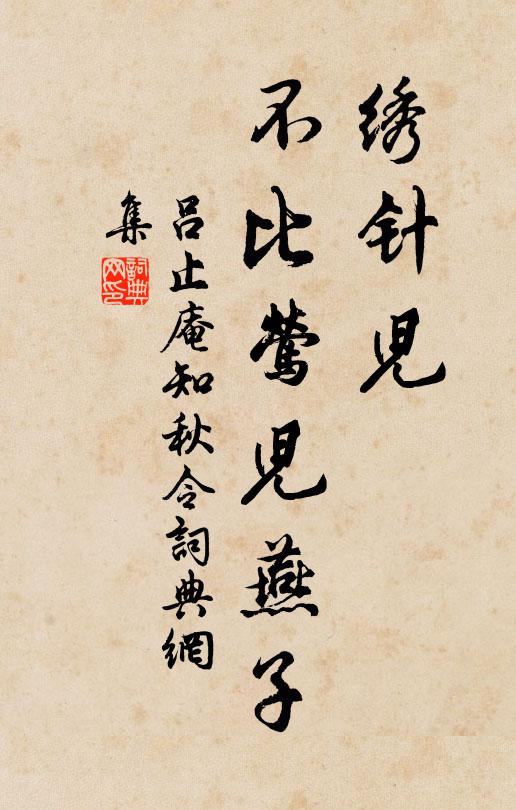 绣针兒
不比莺兒燕子
吕止庵知秋令詞典網
集
詞典
网印